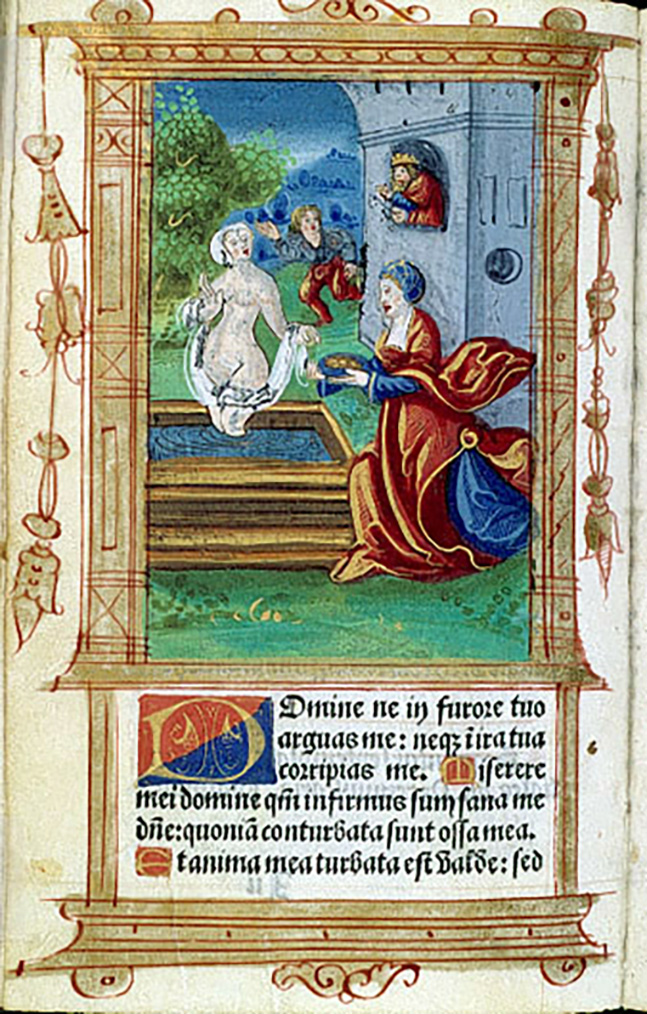 Dmine ne in furore tuo
arguas me: neqꝫ ĩ ira tua
corripias me. Miserere
mei domine qm̃ infirmus sum sana me
dñe: quoniã conturbata sunt ossa mea.
Et anima mea turbata est valde: sed